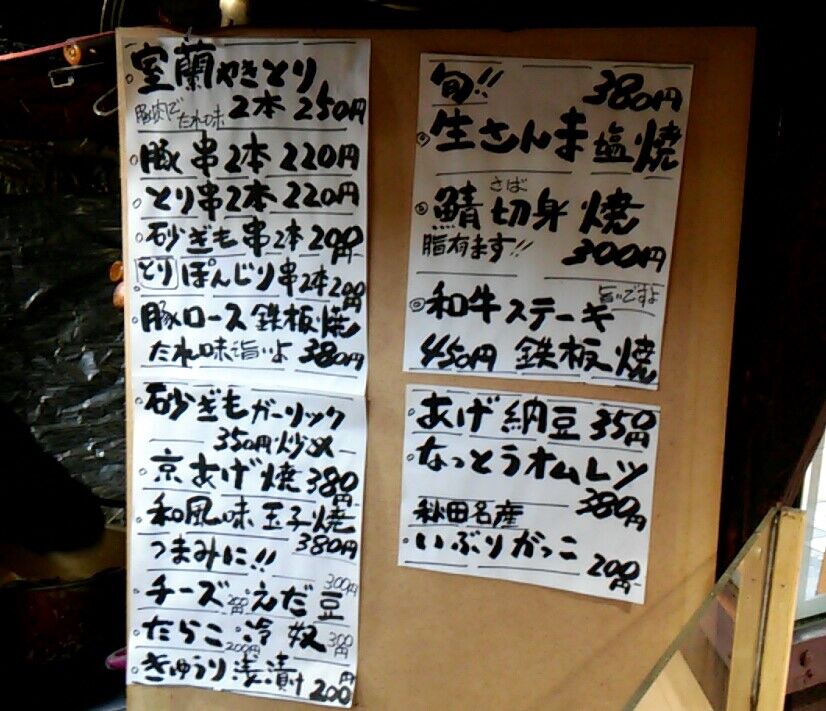 室蘭やきとり
豚肉で
たれ味 2本 250円
豚串2本 220円
とり串2本 220円
砂ぎも串2本 200円
とりぽんじり串2本 200円
豚ロース 鉄板焼
たれ味旨いよ 380円
砂ぎもガーリック
350円 炒め
京あげ焼 380円
和風味 玉子焼
つまみに!! 380円
チーズ えだ豆 300円
たらこ 200円 冷奴 300円
きゅうり浅漬け 200円
旬!! 380円
生さんま塩焼
さば
鯖切身 焼
脂有ます!! 300円
和牛ステーキ 旨いですよ
450円 鉄板焼
あげ納豆 350円
なっとうオムレツ
380円
秋田名産
いぶりがっこ
200円